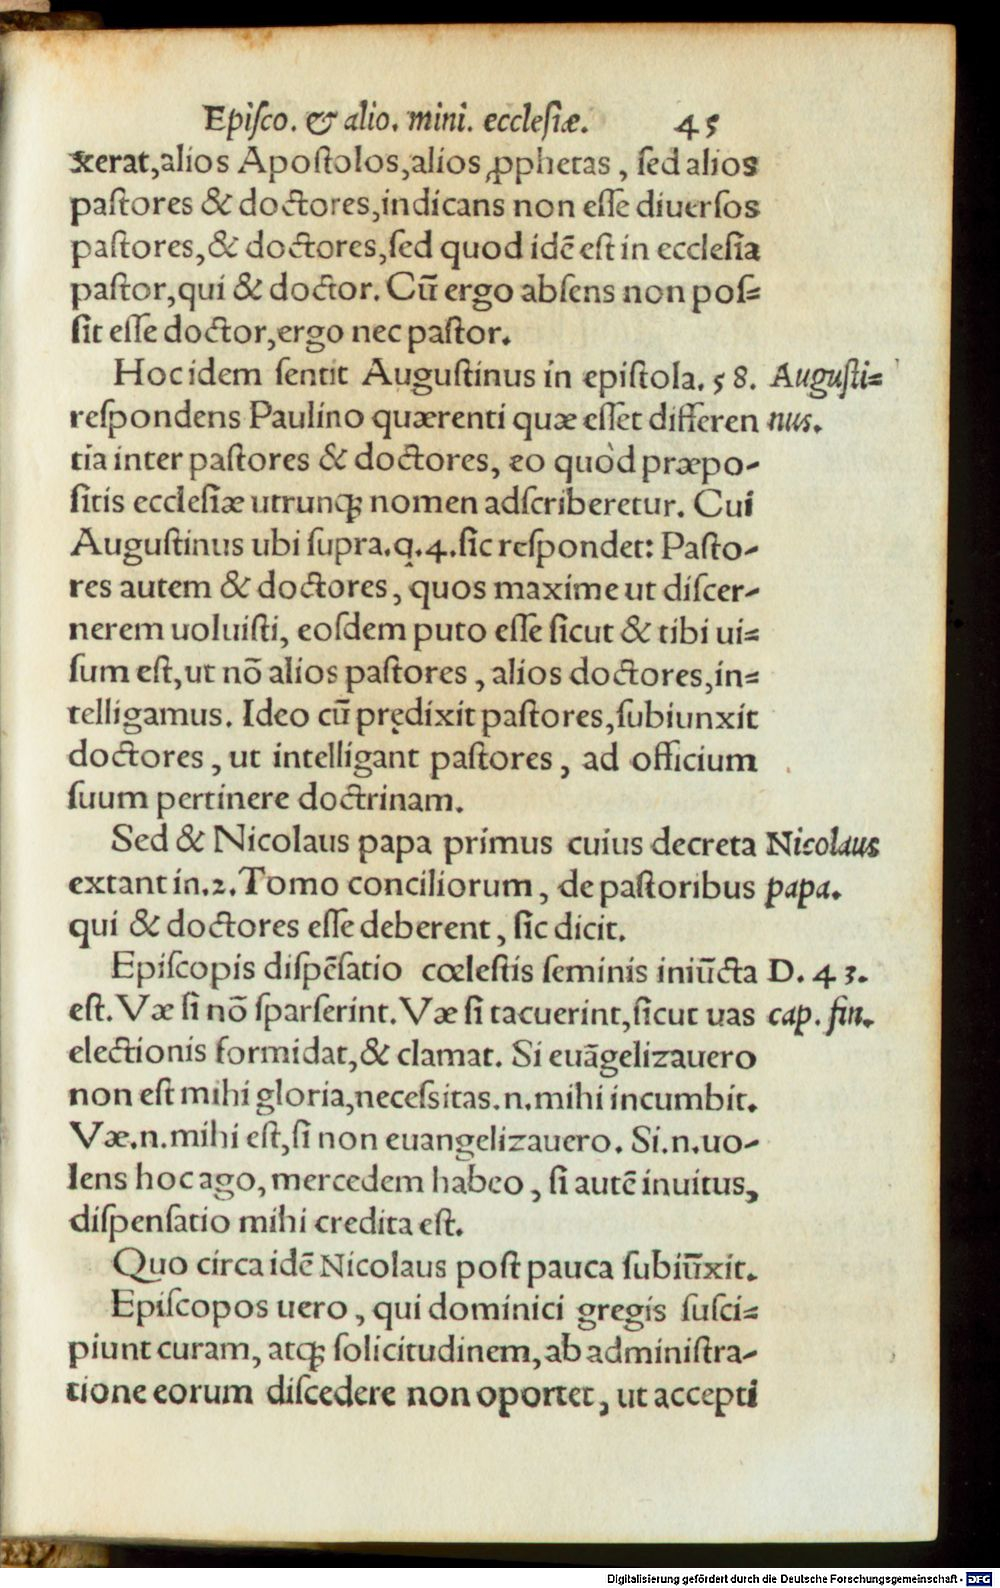 Epiſco. & alio. mini. eccleſiæ. 45
xerat,alios Apoſtolos,alios ꝓphetas, ſed alios
paſtores & doctores,indicans non eſſe diuerſos
paſtores,& doctores,ſed quod idē eſt in eccleſia
paſtor,qui & doctor. Cū ergo abſens non poſ=
ſit eſſe doctor,ergo nec paſtor.
Hoc idem ſentit Auguſtinus in epiſtola. 58. Auguſti=
reſpondens Paulino quærenti quæ eſſet differen nus.
tia inter paſtores & doctores, eo quòd præpo-
ſitis eccleſiæ utrunq; nomen adſcriberetur. Cui
Auguſtinus ubi ſupra.q.4.ſic reſpondet: Paſto-
res autem & doctores, quos maxime ut diſcer-
nerem uoluiſti, eoſdem puto eſſe ſicut & tibi ui=
ſum eſt,ut nō alios paſtores, alios doctores,in=
telligamus. Ideo cū prędixit paſtores,ſubiunxit
doctores, ut intelligant paſtores, ad officium
ſuum pertinere doctrinam.
Sed & Nicolaus papa primus cuius decreta Nicolaus
extant in.2.Tomo conciliorum, de paſtoribus papa.
qui & doctores eſſe deberent, ſic dicit.
Epiſcopis diſpēſatio cœleſtis ſeminis iniūcta D. 43.
eſt. Væ ſi nō ſparſerint. Væ ſi tacuerint,ſicut uas cap. fin.
electionis formidat,& clamat. Si euāgelizauero
non eſt mihi gloria,neceſsitas.n.mihi incumbit.
Væ.n.mihi eſt,ſi non euangelizauero. Si.n.uo-
lens hoc ago, mercedem habeo, ſi autē inuitus,
diſpenſatio mihi credita eſt.
Quo circa idē Nicolaus poſt pauca ſubiūxit.
Epiſcopos uero, qui dominici gregis ſuſci=
piunt curam, atq; ſolicitudinem,ab adminiſtra-
tione eorum diſcedere non oportet, ut accepti
Digitalisierung gefördert durch die Deutsche Forschungsgemeinschaft - DFG